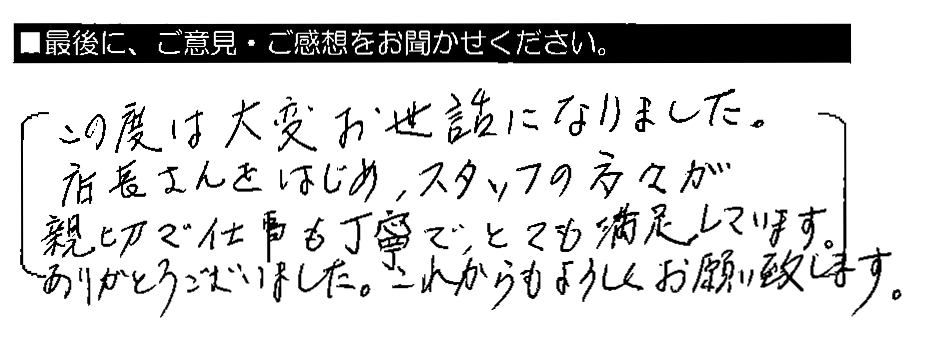 ■最後に、ご意見・ご感想をお聞かせください。
この度は大変お世話になりました。
店長さんをはじめ、スタッフの方々が
親切で仕事も丁寧で、とても満足しています。
ありがとうございました。これからもよろしくお願い致します。